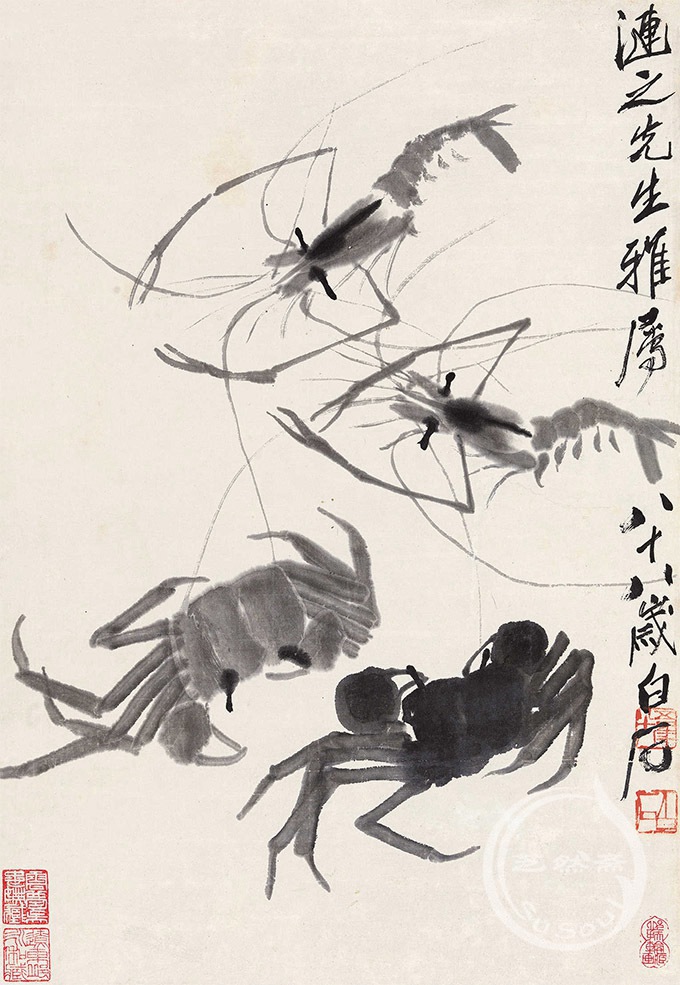 漣之先生雅屬
八十八歲白石
艺然斋
Susoul